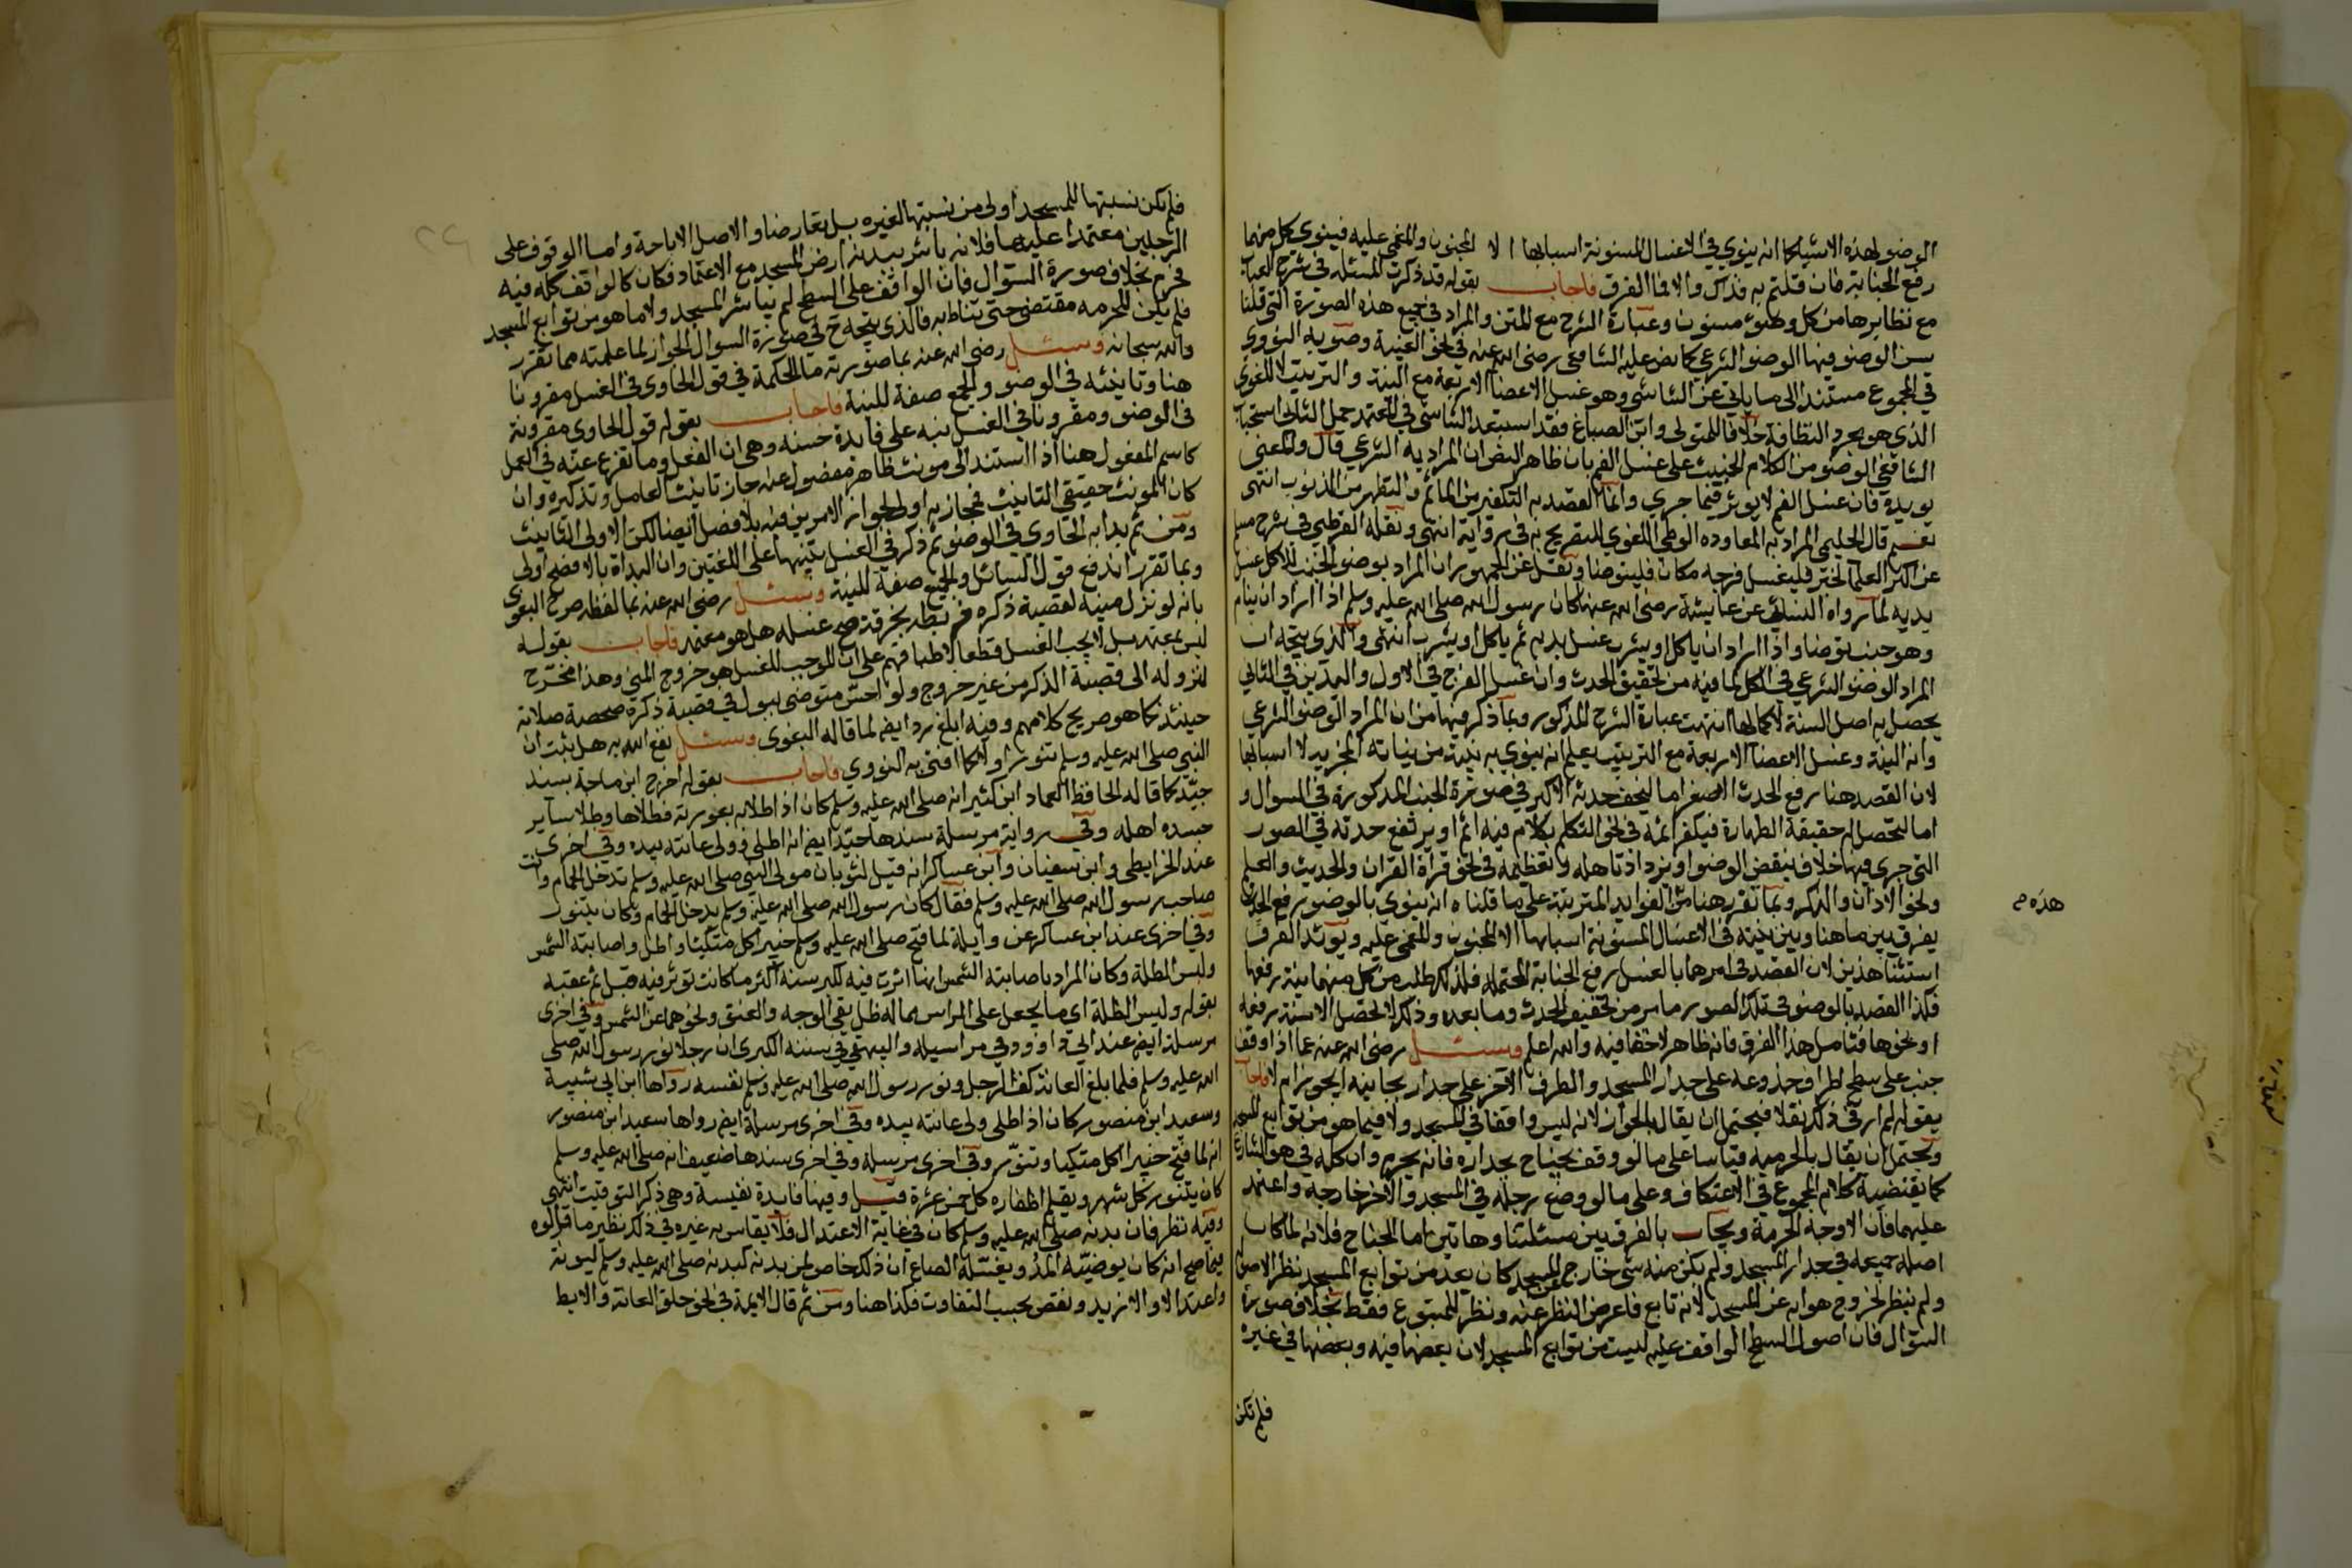 الوضو لهذه الاشيا كما انه ينوي في الاغسال المسنونة اسبابها الا المجنون والمغمى عليه فينوي كل منهما
رفع الجنابة فان قلتم به فذاك والا فما الفرق فاجاب بقوله قد ذكرت المسئلة في شرح العباب
مع نظايرها من كل وضوء مسنون وعبارة الشرح مع المتن والمراد في جميع هذه الصورة التي قلنا
يسن الوضو فيها الوضو الشرعي كما نص عليه الشافعي رضي الله عنه في نحو الغيبة وصوبه النووي
في المجموع مستندا الى ما ياتي عن الشاشي وهو غسل الاعضا الاربعة مع النية والترتيب لا اللغوي
الذي هو مجرد النظافة خلافا للمتولي وابن الصباغ فقد استبعد الشاشي في المعتمد حمل الثاني استحباب
الشافعي الوضو من الكلام الخبيث على غسل الفم بان ظاهر النص ان المراد به الشرعي قال والمعنى
يويده فان غسل الفم لا يوثر فيما جرى وانما القصد به التكفير من الماثم والتطهر من الذنوب انتهى
نعم قال الحليمي المراد به المعاوده الوطي اللغوي للتصريح به في رواية انتهى ونقله القرطبي في شرح مسلم
عن اكثر العلما لخبر فليغسل فرجه مكان فليتوضا ونقل عن الجمهور ان المراد بوضو الجنب للاكل غسل
يديه لما رواه النسائي عن عايشة رضي الله عنها كان رسول الله صلى الله عليه وسلم اذا اراد ان ينام
وهو جنب توضا واذا اراد ان ياكل او يشرب غسل يديه ثم ياكل او يشرب انتهى والذي يتجه ان
المراد الوضو الشرعي في الكل لما فيه من تخفيف الحدث وان غسل الفرج في الاول واليدين في الثاني
يحصل به اصل السنة لا كمالها انتهت عبارة الشرح المذكور وبما ذكر فيها من ان المراد الوضو الشرعي
وانه النية وغسل الاعضا الاربعة مع الترتيب يعلم انه ينوي به نية من نياته المجزية لا اسبابها
لان القصد هنا رفع الحدث الاصغر اما ليخف حدثه الاكبر في صورة الجنب المذكورة في السوال و
اما لتحصل له حقيقة الطهارة فيكفر اثمه في نحو التكلم بكلام فيه اثم او يرتفع حدثه في الصور
التي جرى فيها خلاف بنقض الوضو او يزداد تاهله وتعظيمه في نحو قراة القران والحديث والعلم
ونحو الاذان والذكر وبما تقرر هنا من الفوايد المترتبة على ما قلناه انه ينوي بالوضو رفع الحدث
يفرق بين ما هنا وبين نيته في الاغسال المسنونة اسبابها الا المجنون والمغمى عليه ويويد الفرق
هذه م
استثنا هذين لان القصد في امرهما بالغسل رفع الجنابة المحتملة فلذلك طلب من كل منهما نية رفعها
فكذا القصد بالوضو في تلك الصور ما مر من تخفيف الحدث وما بعده وذلك لا يحصل الا بنية رفعه
او نحوها فتامل هذا الفرق فانه ظاهر لا خفا فيه والله اعلم وسئل رضي الله عنه عما اذا وقف
جنب على سطح اطراف جذوعه على جدار المسجد والطرف الاخر على جدار بجانبه ايجوز ام لا فاجاب
بقوله لم ار في ذلك نقلا فيحتمل ان يقال بالجواز لانه ليس واقفا في المسجد ولا فيما هو من توابع المسجد
ويحتمل ان يقال بالحرمة قياسا على ما لو وقف بجناح بجداره فانه يحرم وان كله في هوا الشارع
كما يقتضيه كلام المجموع في الاعتكاف وعلى ما لو وضع رجله في المسجد والاخر خارجه واعتمد
عليهما فان الاوجه الحرمة ويجاب بالفرق بين مسئلتنا وهاتين اما الجناح فلانه لما كان
اصله جميعه في جدار المسجد ولم يكن منه شي خارج المسجد كان يعد من توابع المسجد نظرا لاصله
ولم ينظر لخروج هوايه عن المسجد لانه تابع فاعرض النظر عنه ونظر للمتبوع فقط بخلاف صورة
السوال فان اصول السطح الواقف عليه ليست من توابع المسجد لان بعضها فيه وبعضها في غيره
فلم تكن
فلم تكن نسبتها للمسجد اولى من نسبتها لغيره بل تعارضا والاصل الاباحة واما الوقوف على
الرجلين معتمدا عليهما فلانه باشر ببدنه ارض المسجد مع الاعتماد فكان كالواقف كله فيه
فحرم بخلاف صورة السوال فان الواقف على السطح لم يباشر المسجد ولا ما هو من توابع المسجد
فلم يكن للحرمه مقتضى حتى تناط به فالذي يتجه ح في صورة السوال الجواز لما علمته مما تقرر
والله سبحانه وسئل رضي الله عنه بما صورته ما الحكمة في قول الحاوي في الغسل مقرونا
هنا وتانيثه في الوضو والجمع صفة للنية فاجاب بقوله قول الحاوي مقرونة
في الوضو ومقرونا في الغسل نبه على فايدة حسنه وهي ان الفعل وما تفرع عنه في العمل
كاسم المفعول هنا اذا استند الى مونث ظاهر مفصول عنه جاز تانيث العامل وتذكيره وان
كان المونث حقيقي التانيث فمجازيه اولى لجواز الامرين فيه بلا فصل ايضا لكن الاولى التانيث
ومن ثم بدا به الحاوي في الوضو ثم ذكر في الغسل تنبيها على اللغتين وان البداة بالافصح اولى
وبما تقرر اندفع قول السائل والجمع صفة للنية وسئل رضي الله عنه بما لفظه صرح البغوي
بانه لو نزل منيه لقصبة ذكره فربطه بخرقة صح غسله هل هو معتمد فاجاب بقوله
ليس بمعتمد بل لا يجب الغسل قطعا لاطباقهم على ان الموجب للغسل هو خروج المني وهذا مخرج
لنزوله الى قصبة الذكر من غير خروج ولو احس متوضي ببول في قصبة ذكره صحصة صلاته
حينئذ كما هو صريح كلامهم وفيه ابلغ رد ايض لما قاله البغوي وسئل نفع الله به هل ثبت ان
النبي صلى الله عليه وسلم تنور او لا كما افتى به النووي فاجاب بقوله اخرج ابن ماجة بسند
جيد كما قاله الحافظ العماد ابن كثير انه صلى الله عليه وسلم كان اذا طلا بدا بعورته فطلاها وطلا ساير
جسده اهله وفي رواية مرسلة سندها جيد ايض انه اطلى وولى عانته بيده وفي اخرى
عند الخرايطي وابن سفيان وابن عساكر انه قيل لثوبان مولى النبي صلى الله عليه وسلم تدخل الحمام وانت
صاحب رسول الله صلى الله عليه وسلم فقال كان رسول الله صلى الله عليه وسلم يدخل الحمام وكان يتنور
وفي اخرى عند ابن عساكر عن واثلة لما فتح صلى الله عليه وسلم خيبر اكل متكيا واطلى واصابته الشمس
ولبس الظلة وكان المراد باصابته الشمس انها اثرت فيه لكبر سنه اكثر مما كانت توثر فيه قبل ثم عقبه
بقوله ولبس الظلة اي ما يجعل على الراس مما له ظل يقي الوجه والعنق ونحوهما عن الشمس وفي اخرى
مرسلة ايض عند ابي داوود في مراسيله والبيهقي في سننه الكبرى ان رجلا نور رسول الله صلى
الله عليه وسلم فلما بلغ العانة كف الرجل ونور رسول الله صلى الله عليه وسلم نفسه رواها ابن ابي شيبة
وسعيد ابن منصور كان اذا طلى ولى عانته بيده وفي اخرى مرسلة ايض رواها سعيد ابن منصور
انه لما فتح خيبر اكل متكيا وتنور وفي اخرى مرسلة وفي اخرى بسندها ضعيف انه صلى الله عليه وسلم
كان يتنور كل شهر ويقلم اظفاره كل خمس عشرة قيل وفيها فايدة نفيسة وهي ذكر التوقيت انتهى
وفيه نظر فان بدنه صلى الله عليه وسلم كان في غاية الاعتدال فلا يقاس به غيره في ذلك نظير ما قالوه
فيما صح انه كان يوضيه المد ويغسله الصاع ان ذلك خاص لمن بدنه كبدنه صلى الله عليه وسلم ليونة
واعتدالا والا زيد ونقص بحسب التفاوت فكذا هنا ومن ثم قال الايمة في نحو حلق العانة والابط